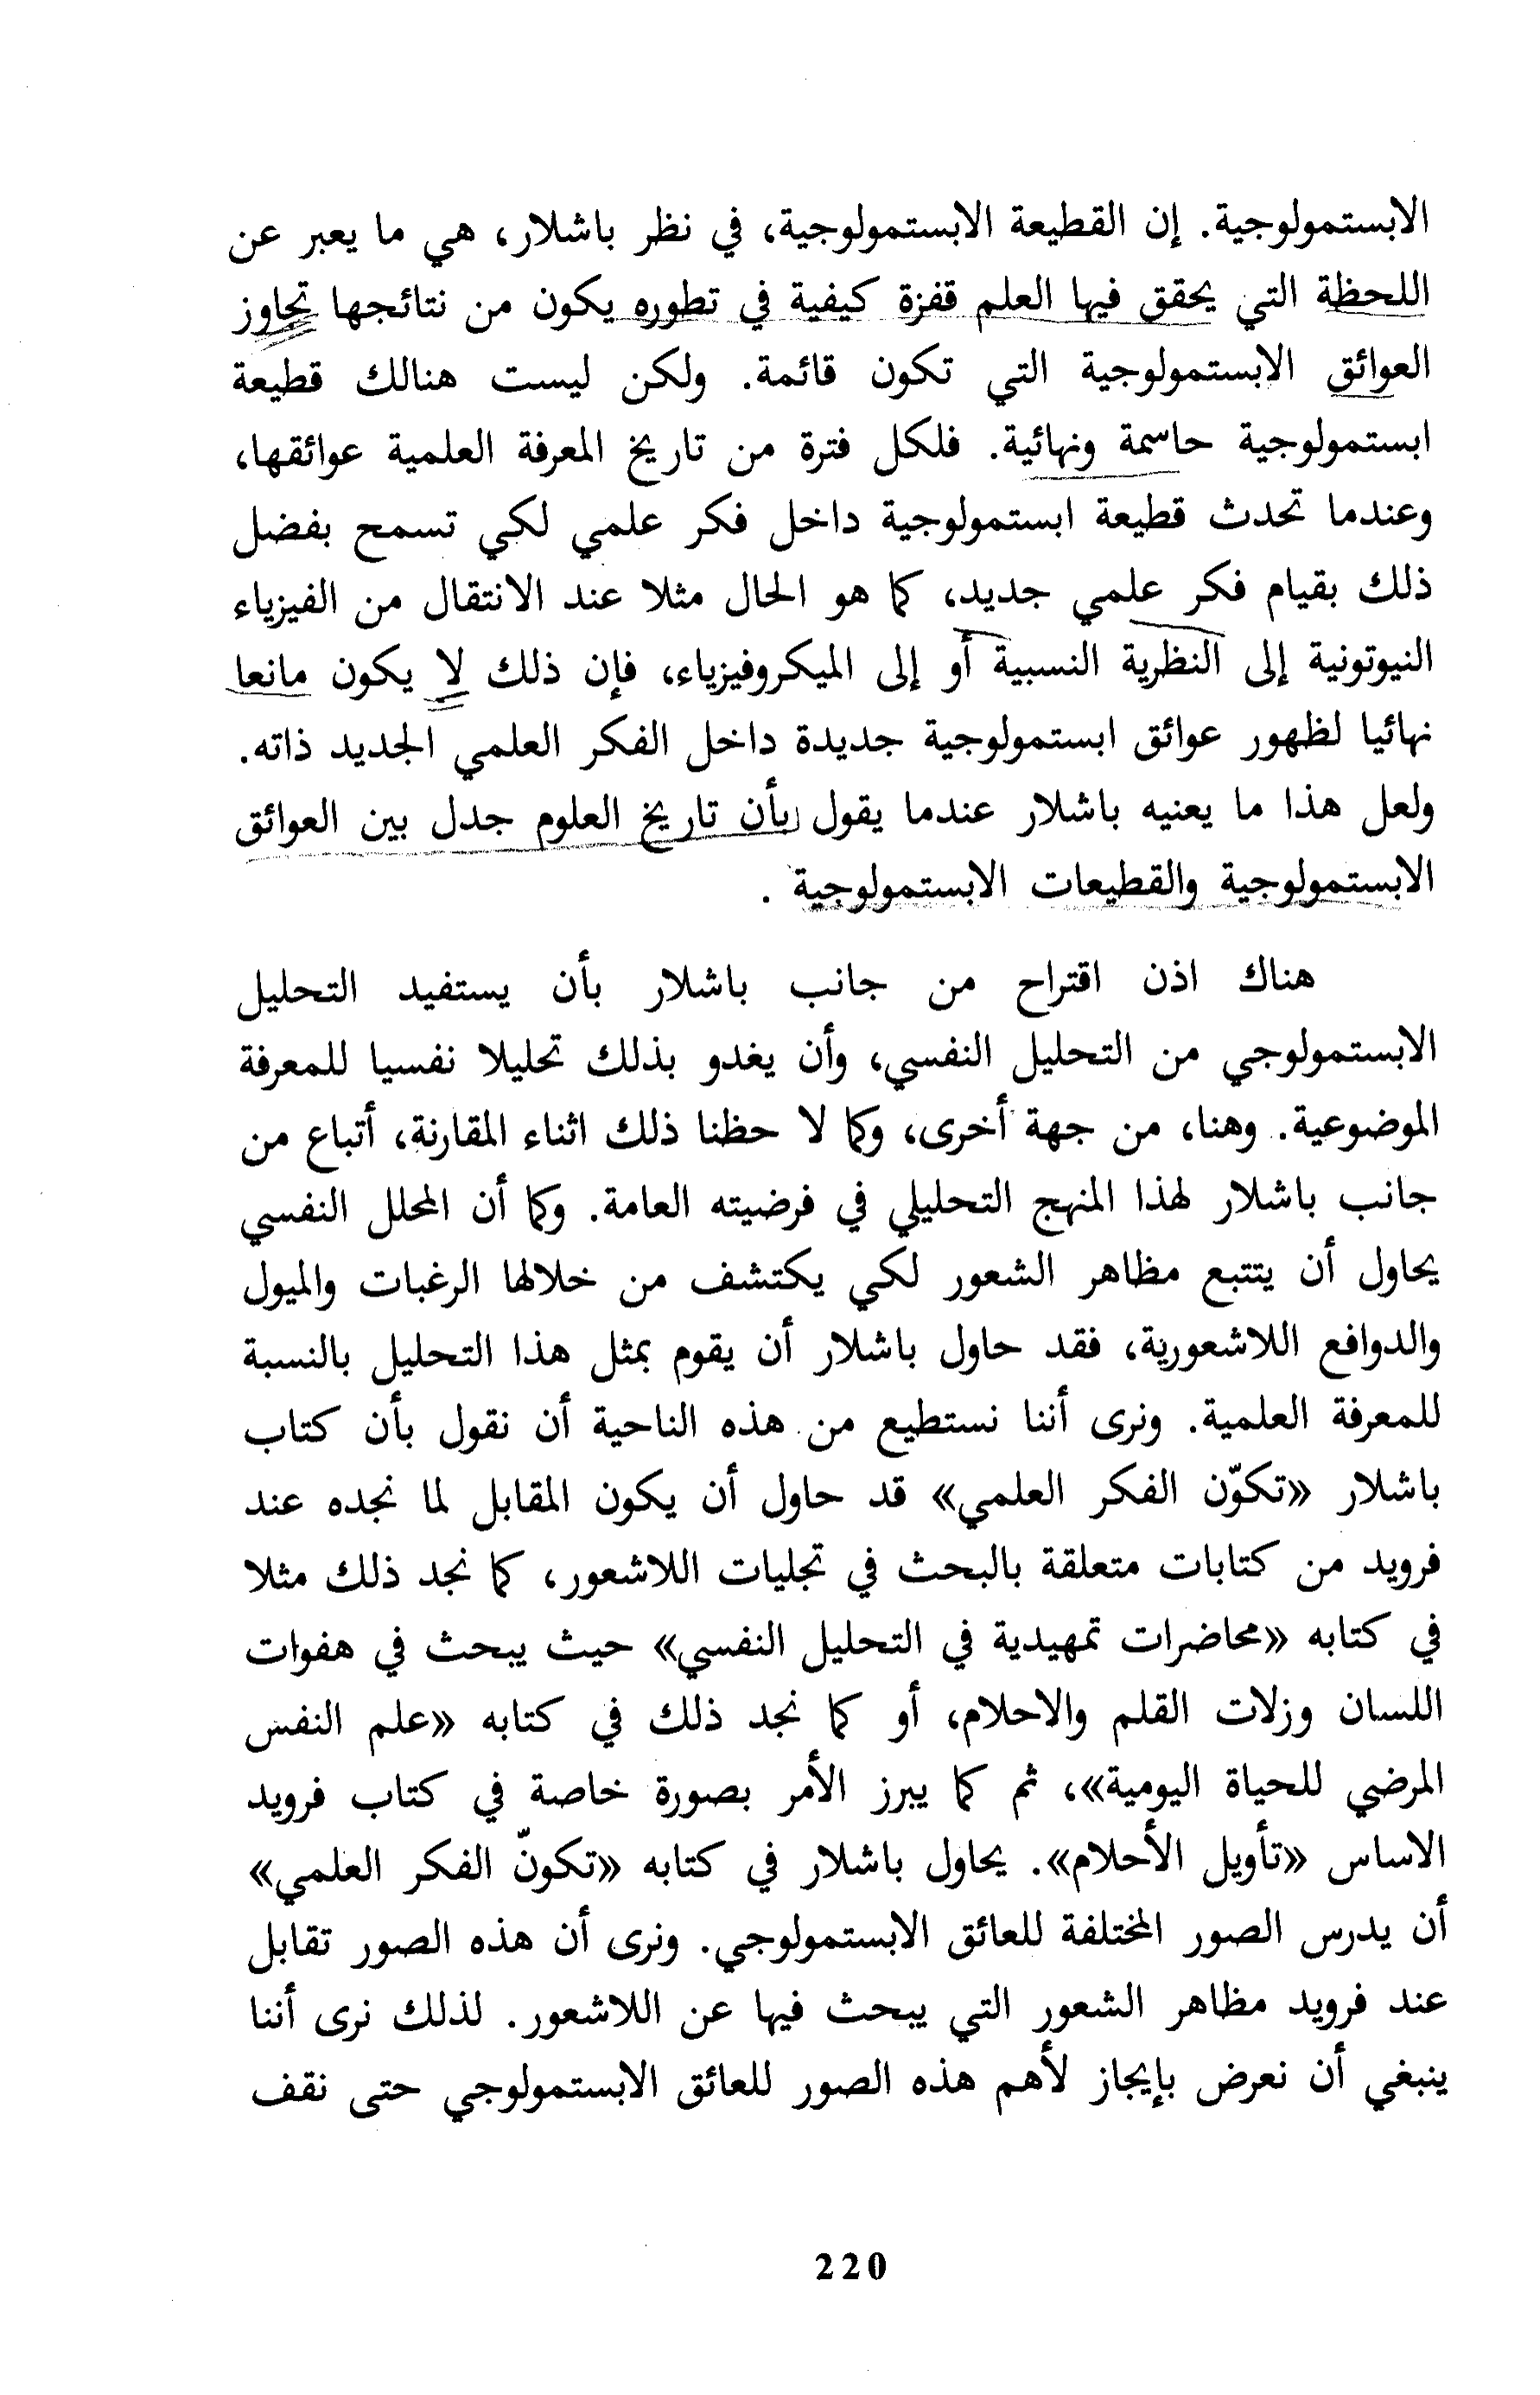 الابستمولوجية. إن القطيعة الابستمولوجية، في نظر باشلار، هي ما يعبر عن
اللحظة التي يحقق فيها العلم قفزة كيفية في تطوره يكون من نتائجها تجاوز
العوائق الابستمولوجية التي تكون قائمة. ولكن ليست هنالك قطيعة
ابستمولوجية حاسمة ونهائية. فلكل فترة من تاريخ المعرفة العلمية عوائقها،
وعندما تحدث قطيعة ابستمولوجية داخل فكر علمي لكي تسمح بفضل
ذلك بقيام فكر علمي جديد، كما هو الحال مثلا عند الانتقال من الفيزياء
النيوتونية إلى النظرية النسبية أو إلى الميكروفيزياء، فإن ذلك لا يكون مانعا
نهائيا لظهور عوائق ابستمولوجية جديدة داخل الفكر العلمي الجديد ذاته.
ولعل هذا ما يعنيه باشلار عندما يقول بأن تاريخ العلوم جدل بين العوائق
الابستمولوجية والقطيعات الابستمولوجية .
هناك اذن اقتراح من جانب باشلار بأن يستفيد التحليل
الابستمولوجي من التحليل النفسي، وأن يغدو بذلك تحليلا نفسيا للمعرفة
الموضوعية. وهنا، من جهة أخرى، وكما لا حظنا ذلك اثناء المقارنة، أتباع من
جانب باشلار لهذا المنهج التحليلي في فرضيته العامة. وكما أن المحلل النفسي
يحاول أن يتتبع مظاهر الشعور لكي يكتشف من خلالها الرغبات والميول
والدوافع اللاشعورية، فقد حاول باشلار أن يقوم بمثل هذا التحليل بالنسبة
للمعرفة العلمية. ونرى أننا نستطيع من هذه الناحية أن نقول بأن كتاب
باشلار «تكوّن الفكر العلمي» قد حاول أن يكون المقابل لما نجده عند
فرويد من كتابات متعلقة بالبحث في تجليات اللاشعور، كما نجد ذلك مثلا
في كتابه «محاضرات تمهيدية في التحليل النفسي» حيث يبحث في هفوات
اللسان وزلات القلم والاحلام، أو كما نجد ذلك في كتابه «علم النفس
المرضي للحياة اليومية»، ثم كما يبرز الأمر بصورة خاصة في كتاب فرويد
الاساس «تأويل الأحلام». يحاول باشلار في كتابه «تكونّ الفكر العلمي»
أن يدرس الصور المختلفة للعائق الابستمولوجي. ونرى أن هذه الصور تقابل
عند فرويد مظاهر الشعور التي يبحث فيها عن اللاشعور. لذلك نرى أننا
ينبغي أن نعرض بإيجاز لأهم هذه الصور للعائق الابستمولوجي حتى نقف
220